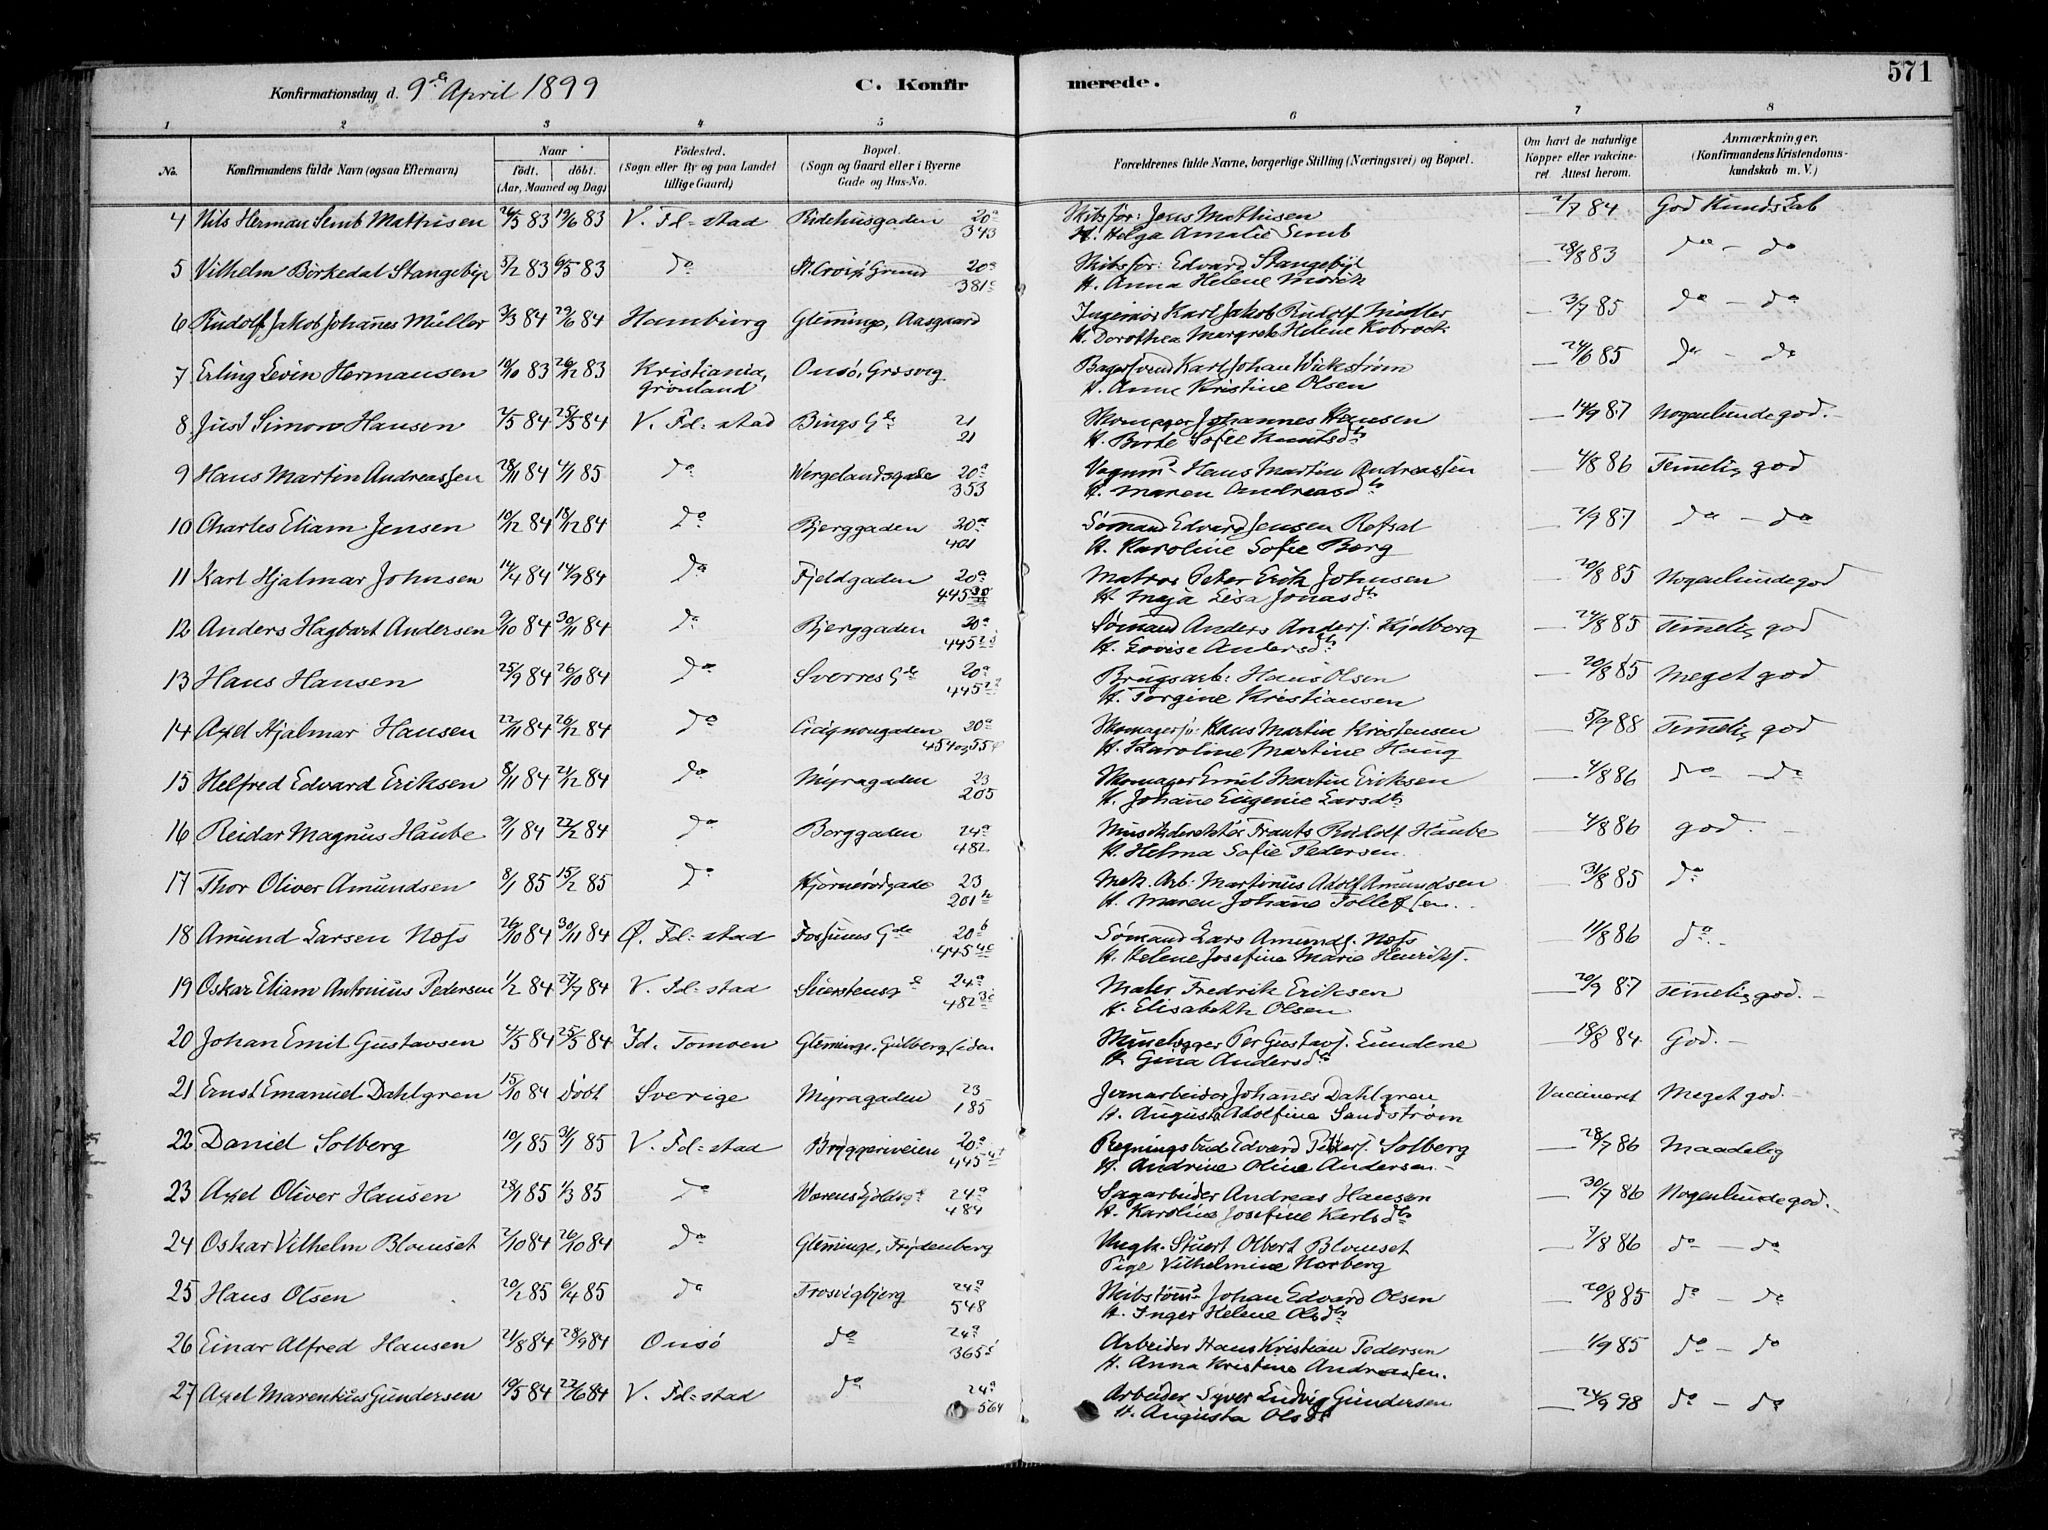 571
Konfirmationsdag d. 9de April 1899 C. Konfirmerede.
1 2 3 4 5 6 7 8
No. Konfirmandens fulde Navn (ogsaa Efternavn) Naar Födt. döbt. (Aar, Maaned og Dag) Födested. (Sogn eller By og paa Landet tillige Gaard) Bopæl. (Sogn og Gaard eller i Byerne Gade og Hus-No. Forældrenes fulde Navne, borgerlige Stilling (Næringsvei) og Bopæl. Om havt de naturlige Kopper eller vakcineret. Attest herom. Anmærkninger. (Konfirmandens Kristendomskundskab m. V.)
4 Nils Herman Semb Mathisen 24/5 83 19/6 83 V. Fd=stad Ridehusgaden 20a 343 Skibsfør: Jens Mathisen H. Helga Amalie Semb — 2/7 84 God Kundskab
5 Vilhelm Börkedal Stangebye 3/2 83 6/5 83 do St. Croix Grund 20a 381c Skibsfør: Edvard Stangebye H. Anna Helene Mörch — 28/8 83 do — do
6 Rudolf Jakob Johañes Müller 3/3 84 29/6 84 Hamburg Glemminge, Aasgaard Ingeniör Karl Jakob Rudolf Müller H. Dorothea Margrete Helene Kobrock — 3/7 85 do — do
7 Erling Levin Hermansen 10/10 83 26/12 83 Kristiania, Grönland Onsö, Gresvig Bagersvend Karl Johan Wickström H. Anne Kristine Olsen — 24/6 85 do — do
8 Just Simon Hansen 7/5 84 25/5 84 V. Fd=stad Bings Gde 21 21 Skomager Johannes Hansen H. Berte Sofie Knutsdtr — 14/9 87 Nogenlunde god.
9 Hans Martin Andreassen 28/11 84 4/1 85 do Wergelandsgade 20a 353 Vognmd Hans Martin Andreassen H. Maren Andreasdtr — 4/8 86 Temmelig god
10 Charles Eliam Jensen 10/12 84 18/12 84 do Bjerggaden 20a 401 Sömand Edvard Jensen Refsal H. Karoline Sofie Berg — 2/9 87 do — do
11 Karl Hjalmar Johnsen 14/4 84 14/9 84 do Fjeldgaden 20a 445 Matros Peter Erik Johnsen H. Maja Lisa Jonasdtr — 20/8 85 Nogenlunde god
12 Anders Hagbart Andersen 9/10 84 30/11 84 do Bjerggaden 20a 445 Sömand Anders Anders. Kjelberg H. Lovise Andersdtr — 24/8 85 Temmelig god
13 Hans Hansen 25/9 84 26/10 84 do Sverres Gde 20a 445 Brugsarb: Hans Olsen H. Torgine Kristiansen — 20/8 85 Meget god
14 Axel Hjalmar Hansen 22/11 84 26/12 84 do Cicignongaden 20a Skomagers: Hans Martin Kristensen H. Karoline Martine Haug — 5/9 88 Temmelig god
15 Helfred Edvard Eriksen 8/11 84 21/12 84 do Myragaden 23 205 Skomager Emil Martin Eriksen H. Johañe Eugenie Larsdtr — 4/8 86 do — do
16 Reidar Magnus Haube 9/1 84 22/2 84 do Borggaden 24a 482 Musikdirektör Frants Rudolf Haube H. Helma Sofie Pedersen. — 4/8 86 god.
17 Thor Oliver Amundsen 8/1 85 15/2 85 do Hjörnerödgade 23 201b Mek. Arb: Martinus Adolf Amundsen H. Maren Johañe Tollefsen. — 31/8 85 do
18 Amund Larsen Næss 26/10 84 30/11 84 Ø. Fd=stad Fossums Gde 20b 445 Sömand Lars Amunds. Næss H. Helene Josefine Marie Henriks. — 11/8 86 do.
19 Oskar Eliam Antonius Pedersen 1/2 84 27/7 84 V. Fd=stad 24a 482 Maler Fredrik Eriksen H. Elisabeth Olsen — 20/9 87 Temmelig god.
20 Johan Emil Gustavsen 4/5 84 25/5 84 Id. Tomoen Glemminge, Gulbergsiden Minelegger Per Gustavs. Lundene H. Gina Andersdtr — 18/8 84 God.
21 Ernst Emanuel Dahlgren 15/10 84 Döbt Sverige Myragaden 23 185 Jernarbeider Johañes Dahlgren H. Augusta Adolfine Sandström Vaccineret Meget god.
22 Daniel Solberg 10/1 85 31/1 85 V. Fd=stad Bryggeriveien 20a 445 Regningsbud Edvard Peders. Solberg H. Andrine Oline Andersen. — 28/7 86 Maadelig
23 Axel Oliver Hansen 28/1 85 1/3 85 do Wærenskjoldsgd 24a 484 Sagarbeider Andreas Hansen H. Karoline Josefine Karlsdtr — 30/7 86 Nogenlunde god.
24 Oskar Vilhelm Blomset 7/10 84 26/10 84 do Glemminge, Frydenberg Ungk. Stuert Olbert Blomset Pige Vilhelmine Norberg — 7/8 86 do — do
25 Hans Olsen 20/2 85 6/4 85 do Trosvigbjerg 24a 548 Skibstömd Johan Edvard Olsen H. Inger Helene Olsdtr — 20/8 85 do — do
26 Einar Alfred Hansen 21/8 84 28/9 84 Onsö do 24a 365 Arbeider Hans Kristian Pedersen H. Anna Kristine Andreassen. — 1/9 85 do — do
27 Axel Marentius Gundersen 10/5 84 22/6 84 V. Fd=stad do 24a 564 Arbeider Syver Ludvig Gundersen H. Augusta Olsdtr — 24/9 98 do — do